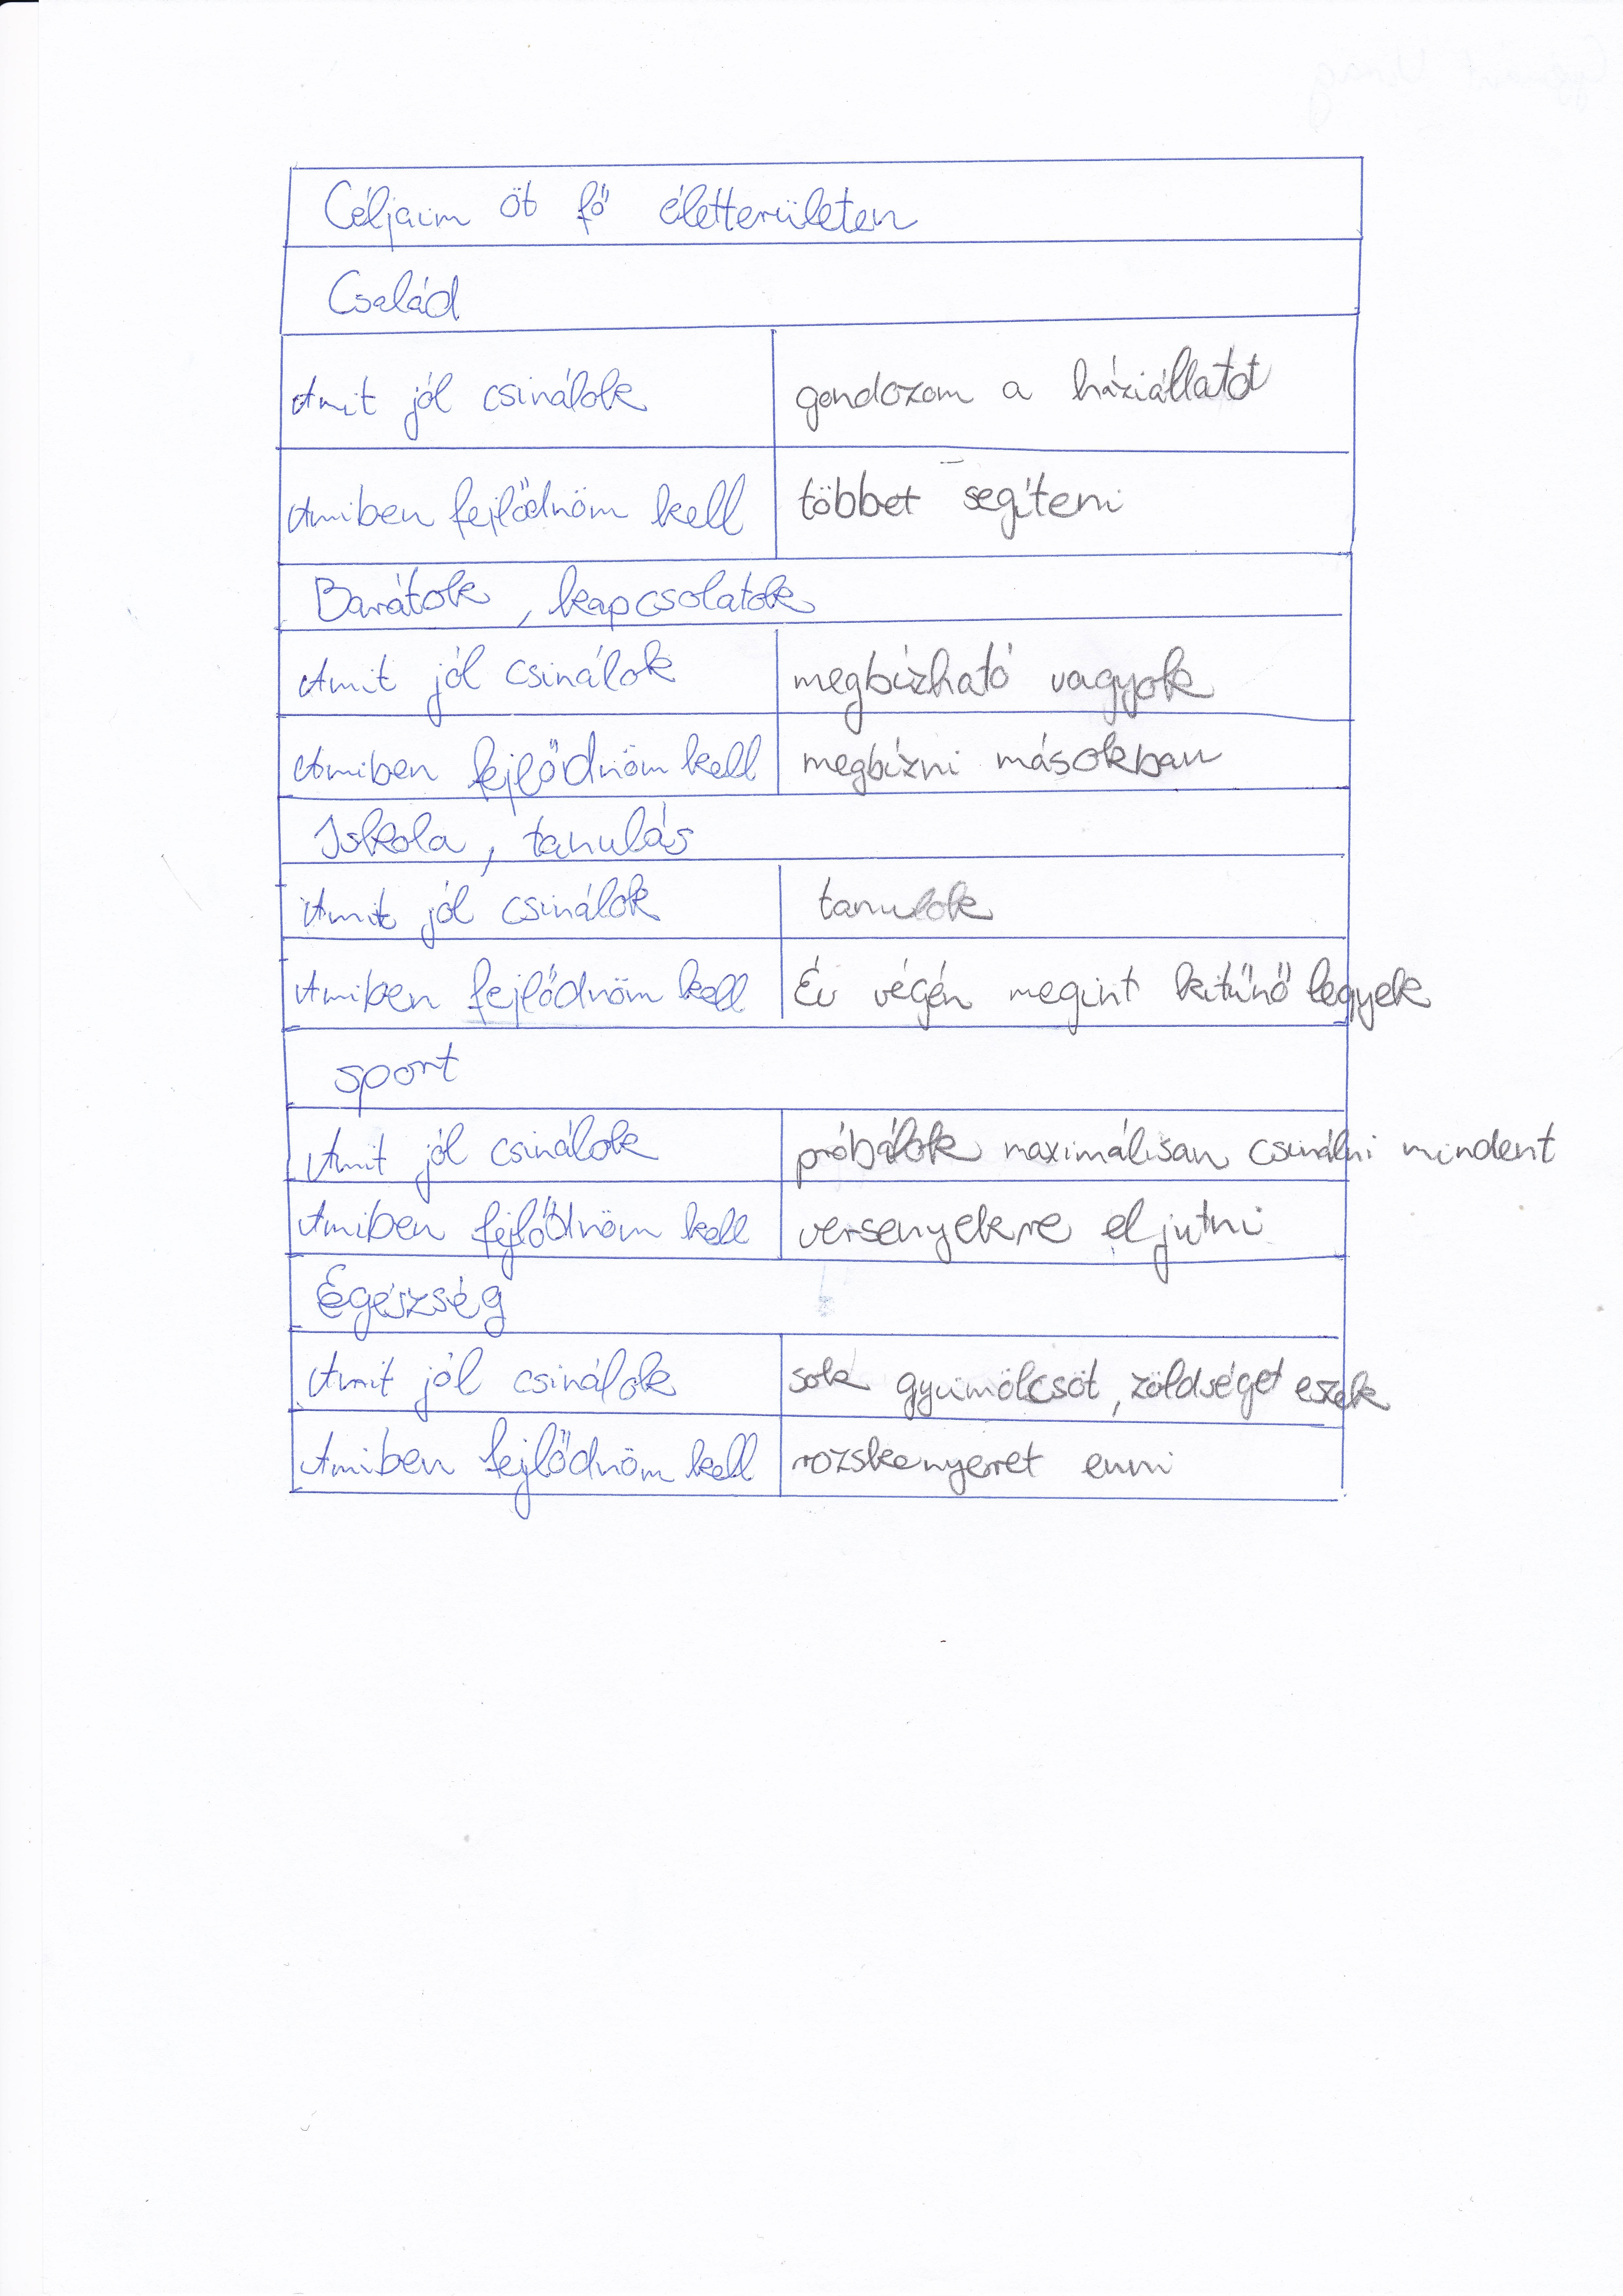 Céljaim öt fő életterületen
Család
Amit jól csinálok gondozom a háziállatot
Amiben fejlődnöm kell többet segíteni
Barátok, kapcsolatok
Amit jól csinálok megbízható vagyok
Amiben fejlődnöm kell megbízni másokban
Iskola, tanulás
Amit jól csinálok tanulok
Amiben fejlődnöm kell Év végén megint kitűnő legyek
sport
Amit jól csinálok próbálok maximálisan csinálni mindent
Amiben fejlődnöm kell versenyekre eljutni
Egészség
Amit jól csinálok sok gyümölcsöt, zöldséget eszek
Amiben fejlődnöm kell rozskenyeret enni